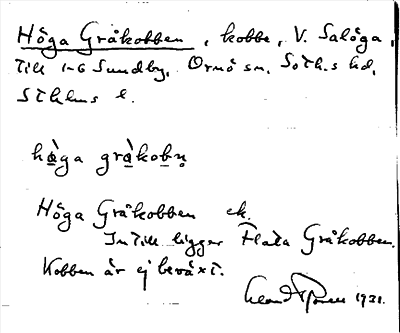 Höga Gråkobben, kobbe, V. Salöga,
till 1-6 Sundby, Ornö sn, Soth.s hd,
Sthlms l.
hö̀ga grå̀kobn̥
Höga Gråkobben ek.
Intill ligger Flata Gråkobben.
Kobben är ej beväxt.
1931.